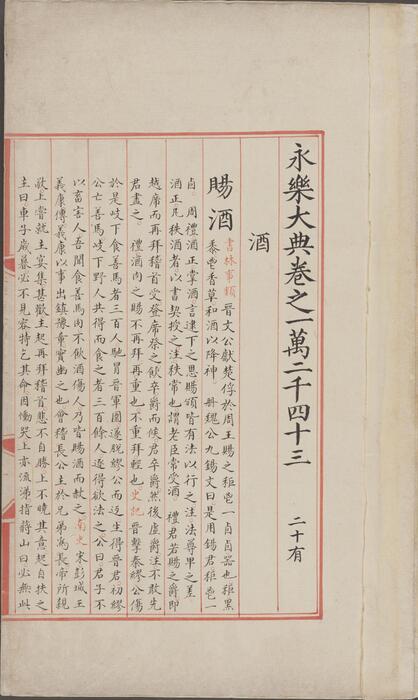 永樂大典卷之一萬二千四十三 二十有
酒
賜酒 書林事類 晉文公獻楚俘於周王賜之秬鬯一卣卣器也秬黑
黍鬯香草和酒以降神。 冊魏公九錫文曰是用錫君秬鬯一
卣 周禮酒正掌酒言逮下之恩賜頒皆有法以行之注法尊卑之差
酒正凡秩酒者以書契授之注秩常也謂老臣常受酒。禮君若賜之爵即
越席而再拜稽首受登席祭之飲卒爵而俟君卒爵然後虛爵注不敢先
君盡之。 禮酒肉之賜不再拜再重也不重拜輕也史記 晉擊秦繆公傷
於是岐下食善馬者三百人馳冒晉軍圍遂脫繆公而返生得晉君初繆
公亡善馬岐下野人共得而食之者三百餘人逐得欲法之公曰君子不
以畜害人吾聞食善馬肉不飲酒傷人乃皆賜酒而赦之南史 宋彭城王
義康傳義康以事出鎮豫章實幽之也會稽長公主於兄弟為長帝所親
敬上嘗就主宴集甚歡主起再拜稽首悲不自勝上不曉其意起自扶之
主曰車子歲暮必不見容特乞其命因慟哭上亦流涕指蔣山曰必無此